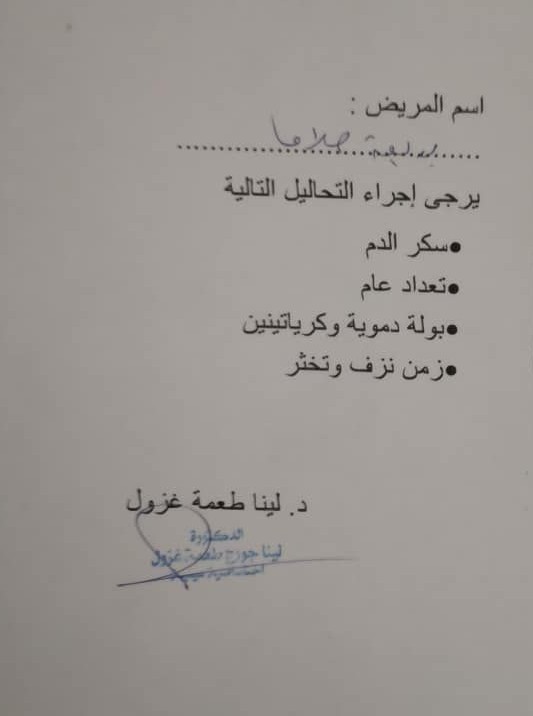 اسم المريض :
بديعة صلاحا
يرجى إجراء التحاليل التالية
•سكر الدم
•تعداد عام
•بولة دموية وكرياتينين
•زمن نزف وتخثر
د. لينا طعمة غزول
الدكتورة
لينا جورج طعمة غزول